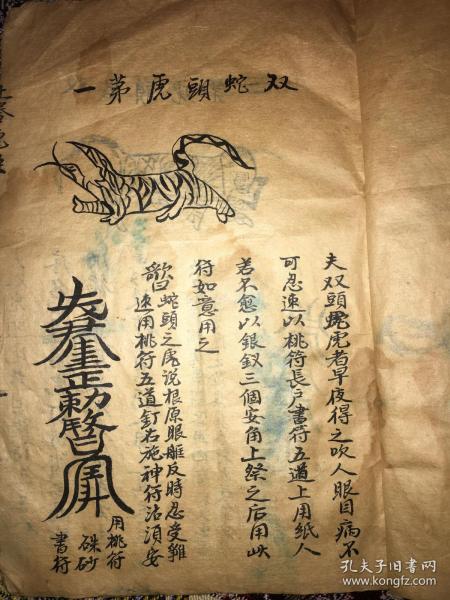 双蛇頭虎第一
夫双頭蛇虎者早夜得之吹人眼目病不
可忍速以桃符長戶書符五道上用紙人
若不愈以銀釵三個安角上祭之后用此
符如意用之
歌曰蛇頭之虎说根原眼睢反時忍受難
速用桃符五道釘右施神符沾須安
用桃符
硃砂
書符
孔夫子旧书网
www.kongfz.com